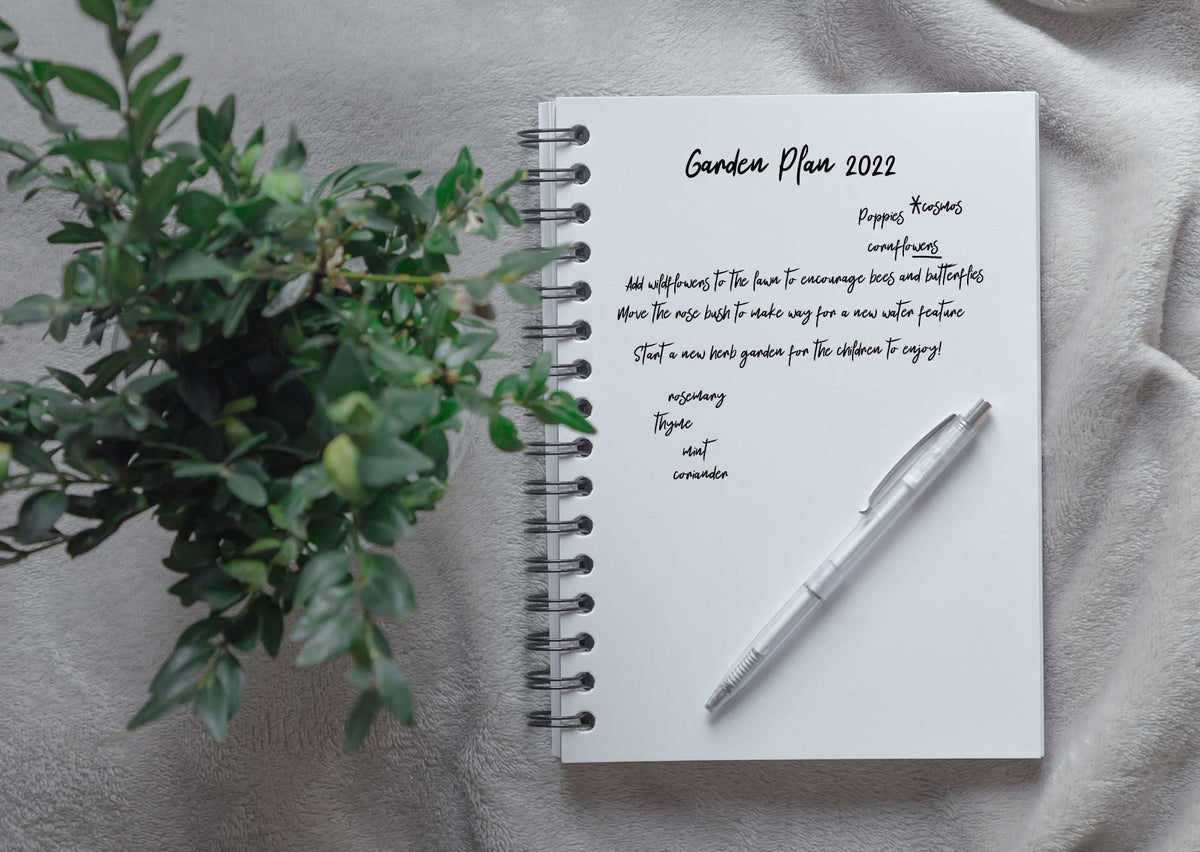 Garden Plan 2022
Poppies *cosmos
cornflowers
Add wildflowers to the lawn to encourage bees and butterflies
Move the rose bush to make way for a new water feature
Start a new herb garden for the children to enjoy!
rosemary
Thyme
mint
coriander